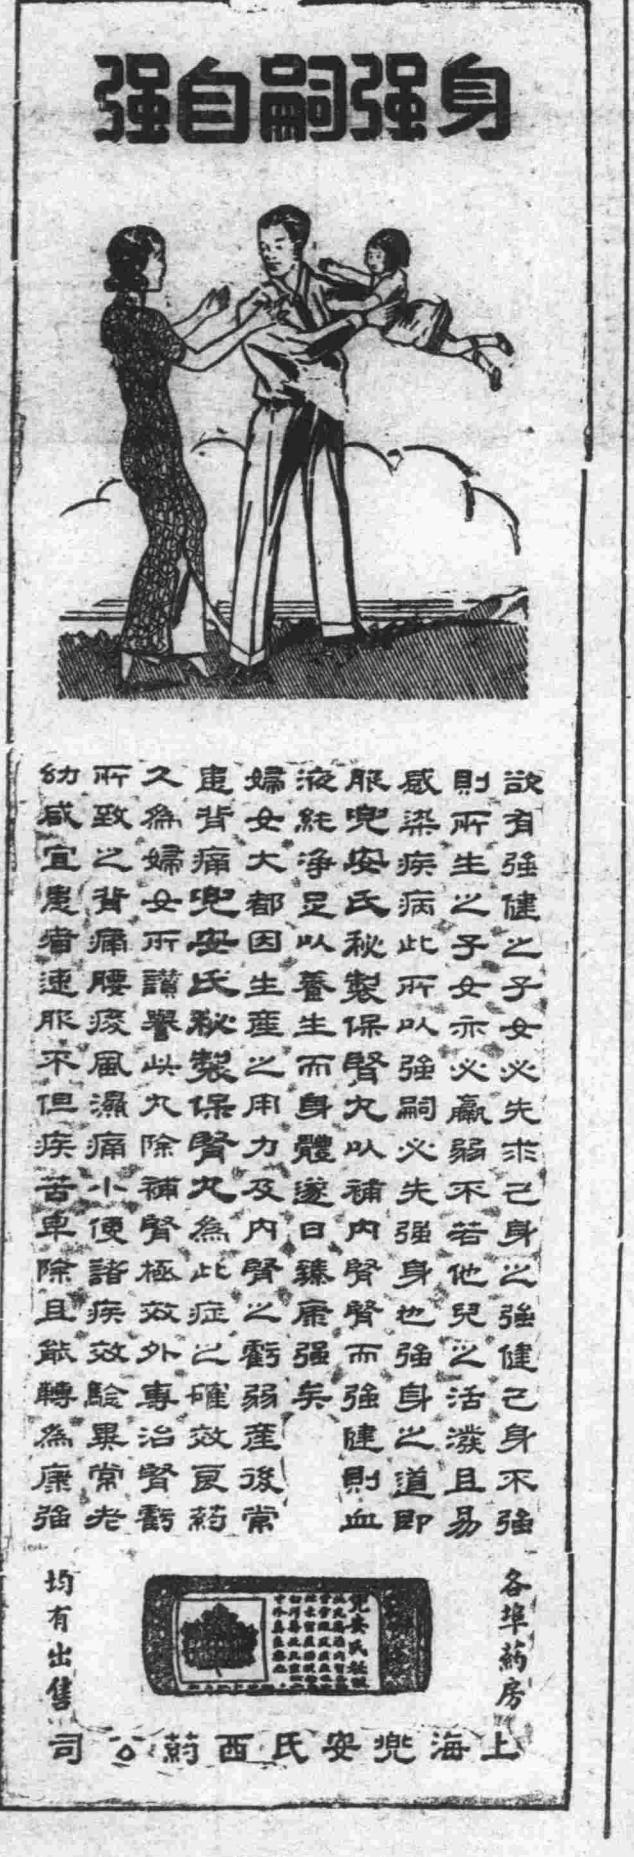 身强嗣自强
欲有强健之子女必先求己身之强健己身不强
則所生之子女亦必羸弱不若他兒之活潑且易
感染疾病此所以強嗣必先强身也強身之道即
服兜安氏秘製保腎丸以補內腎腎而强健則血
液純淨足以養生而身體遂日臻康强矣
婦女大都因生產之用力及內腎之虧弱產後常
患背痛兜安氏秘製保腎丸為此症之確效良葯
久為婦女所讚譽此丸除補腎極效外專治腎虧
所致之背痛腰痠風濕痛小便諸疾效驗異常老
幼咸宜患者速服不但疾苦卑除且能轉為康強
各埠葯房
均有出售
兜安氏秘製
上海兜安氏西葯公司